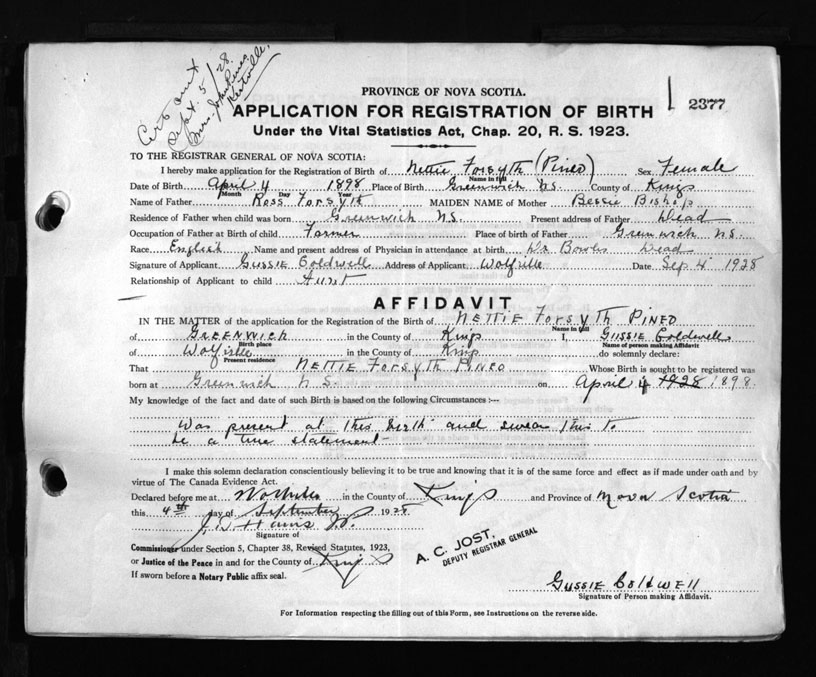 Cert. sent
Sept. 5/28.
Mrs. John Pineo
Kentville.
PROVINCE OF NOVA SCOTIA.
APPLICATION FOR REGISTRATION OF BIRTH
2377
Under the Vital Statistics Act, Chap. 20, R. S. 1923.
TO THE REGISTRAR GENERAL OF NOVA SCOTIA:
I hereby make application for the Registration of Birth of Nettie Forsyth (Pineo) Sex Female
Name in full
Date of Birth April 4 1898 Place of Birth Greenwich N.S. County of Kings
Month Day Year
Name of Father Ross Forsyth MAIDEN NAME of Mother Bessie Bishop
Residence of Father when child was born Greenwich N.S. Present address of Father Dead
Occupation of Father at Birth of child Farmer Place of birth of Father Greenwich N.S.
Race English Name and present address of Physician in attendance at birth Dr Bowles Dead
Signature of Applicant Gussie Coldwell Address of Applicant Wolfville Date Sep 4 1928
Relationship of Applicant to child Aunt
AFFIDAVIT
IN THE MATTER of the application for the Registration of the Birth of NETTIE ForsyTh PINEO
Name in full
of GREENWICH in the County of Kings I, GUSSIE Coldwell
Birth place Name of person making Affidavit
of Wolfville in the County of Kings do solemnly declare:
Present residence
That NETTIE ForsyTh PINEO Whose Birth is sought to be registered was
born at Greenwich N S. on April 4 1928 1898
My knowledge of the fact and date of such Birth is based on the following Circumstances :—
Was present at this birth and swear this to
be a true statement-
I make this solemn declaration conscientiously believing it to be true and knowing that it is of the same force and effect as if made under oath and by
virtue of The Canada Evidence Act.
Declared before me at Wolfville in the County of King's and Province of Nova Scotia
this 4th day of September 1928
Signature of
Commissioner under Section 5, Chapter 38, Revised Statutes, 1923,
or Justice of the Peace in and for the County of King's
If sworn before a Notary Public affix seal.
A. C. JOST.
DEPUTY REGISTRAR GENERAL
GUSSIE ColdWELL
Signature of Person making Affidavit.
For Information respecting the filling out of this Form, see Instructions on the reverse side.